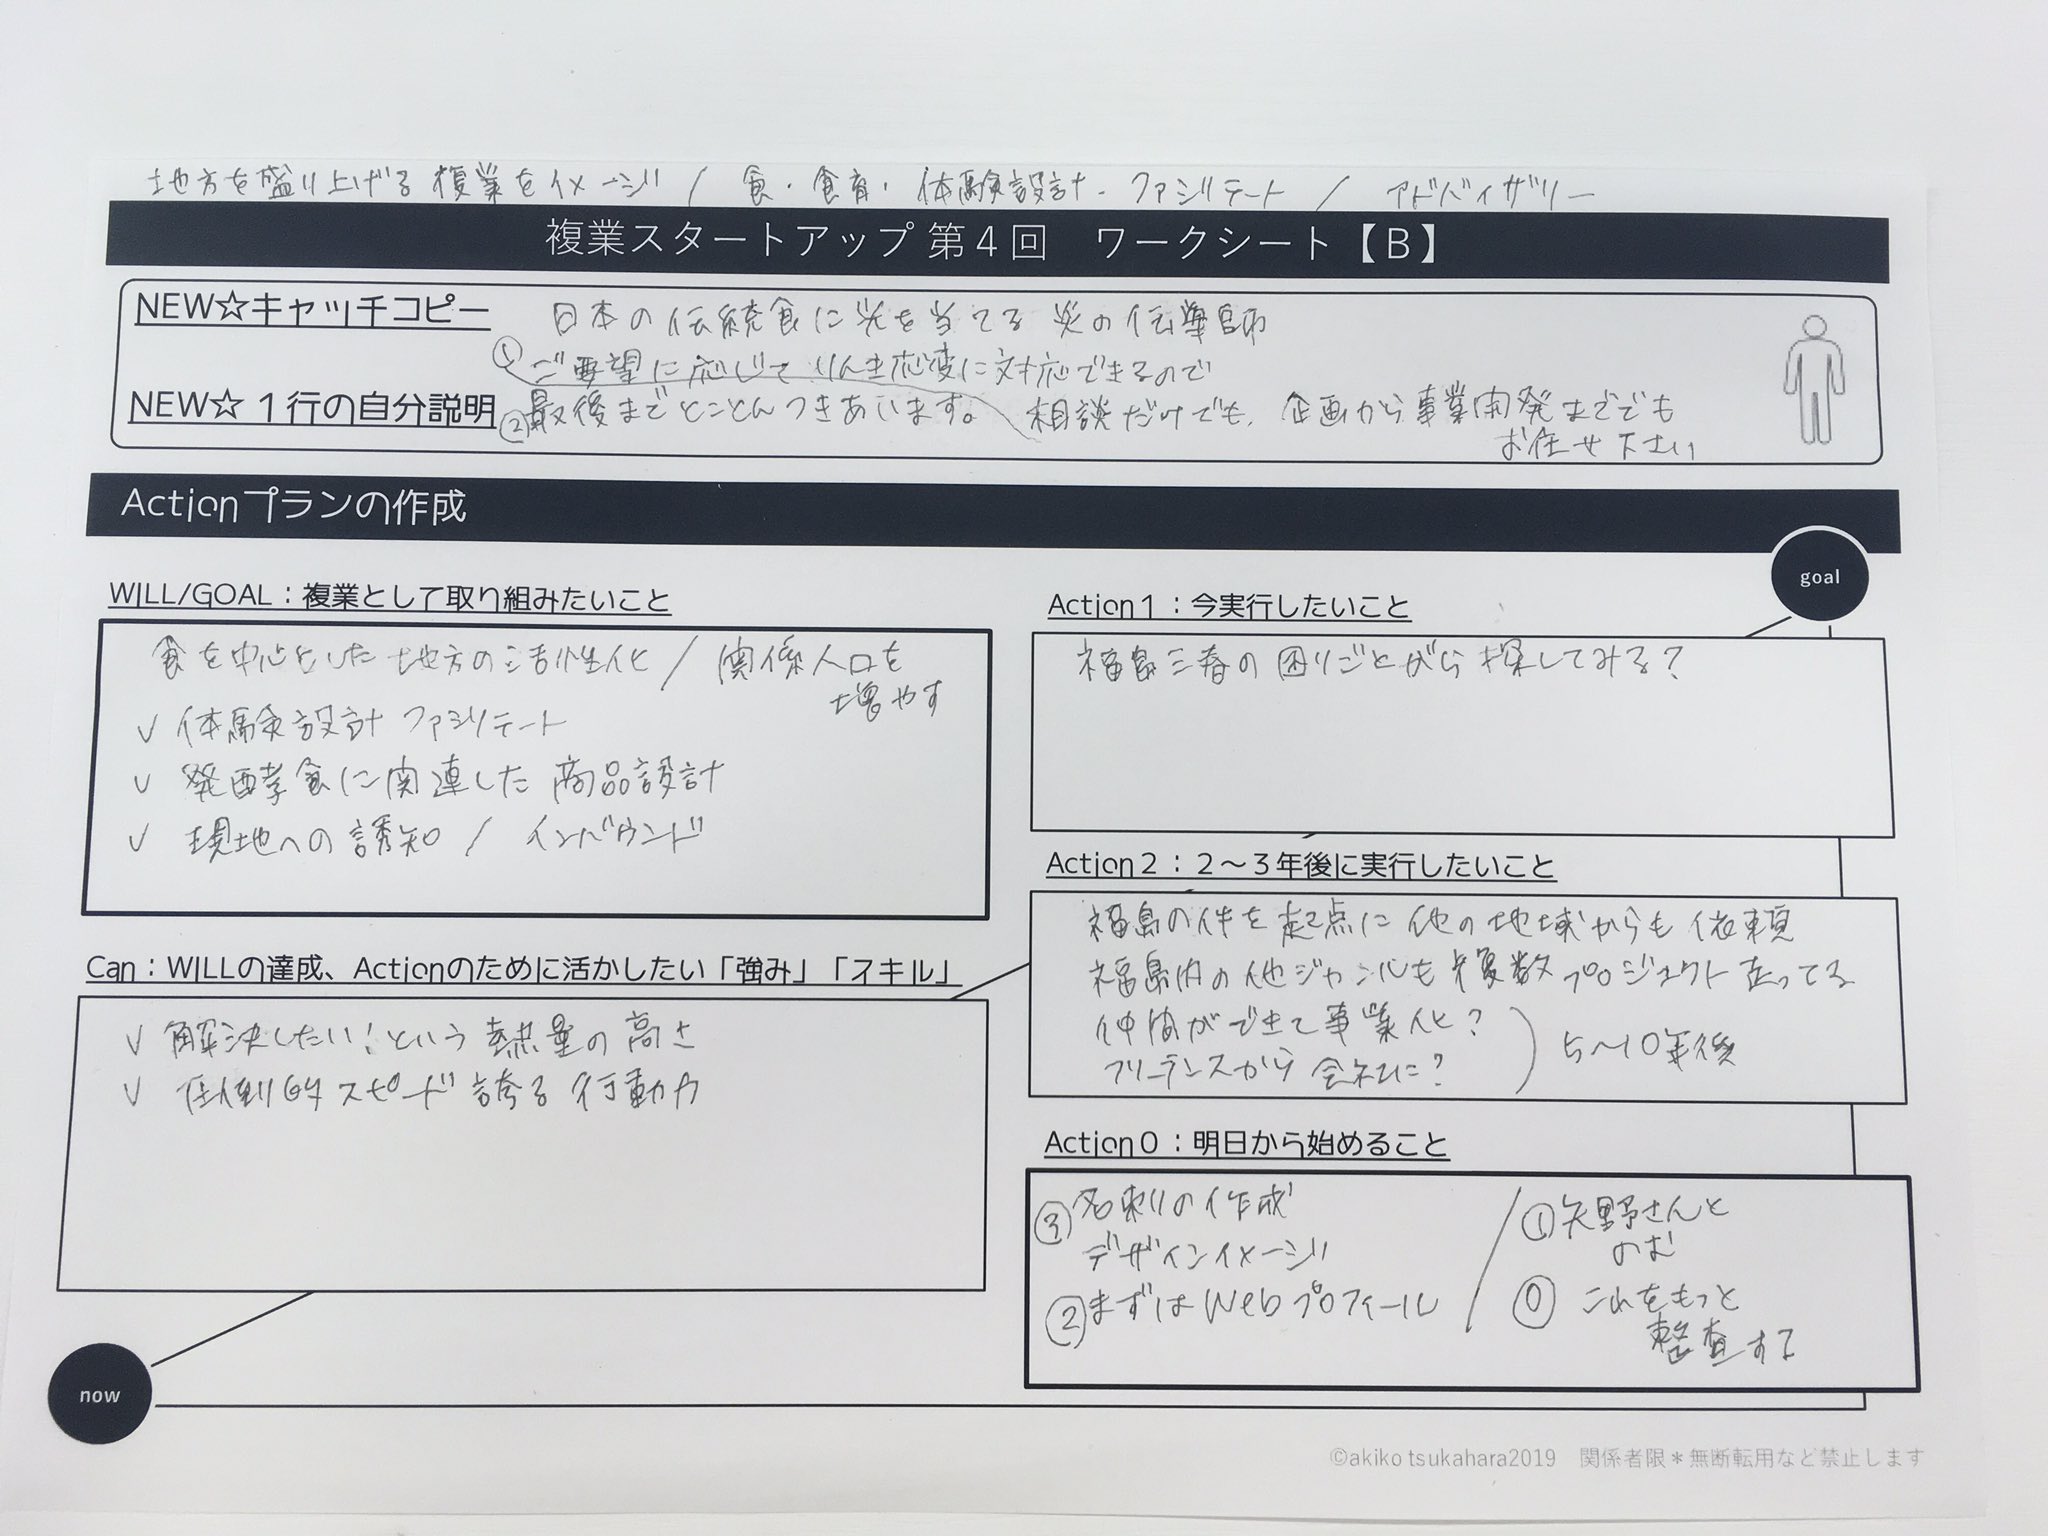 地方を盛り上げる複業をイメージ / 食・食育・体験設計・ファシリテート / アドバイザリー
複業スタートアップ 第4回 ワークシート【B】
NEW☆キャッチコピー
日本の伝統食に光を当てる炎の伝導師
①ご要望に応じてりんき応変に対応できるので
NEW☆1行の自分説明
②最後までとことんつきあいます。 相談だけでも、企画から事業開発まででも
お任せ下さい
Actionプランの作成
goal
WILL/GOAL:複業として取り組みたいこと
食を中心とした地方の活性化 / 関係人口を
増やす
✓ 体験設計ファシリテート
✓ 発酵食に関連した商品設計
✓ 現地への誘知 / インバウンド
Can:WILLの達成、Actionのために活かしたい「強み」「スキル」
✓ 解決したい!という熱量の高さ
✓ 圧倒的スピード誇る行動力
now
Action1:今実行したいこと
福島三春の困りごとがら探してみる?
Action2:2〜3年後に実行したいこと
福島の件を起点に他の地域からも依頼
福島内の他ジャンルも複数プロジェクト走ってる
仲間ができて事業化?
フリーランスから会社に?
5〜10年後
Action0:明日から始めること
③名刺の作成
デザインイメージ
②まずはWebプロフィール
①矢野さんと
のむ
⓪これをもっと
整査する
©akiko tsukahara2019 関係者限*無断転用など禁止します